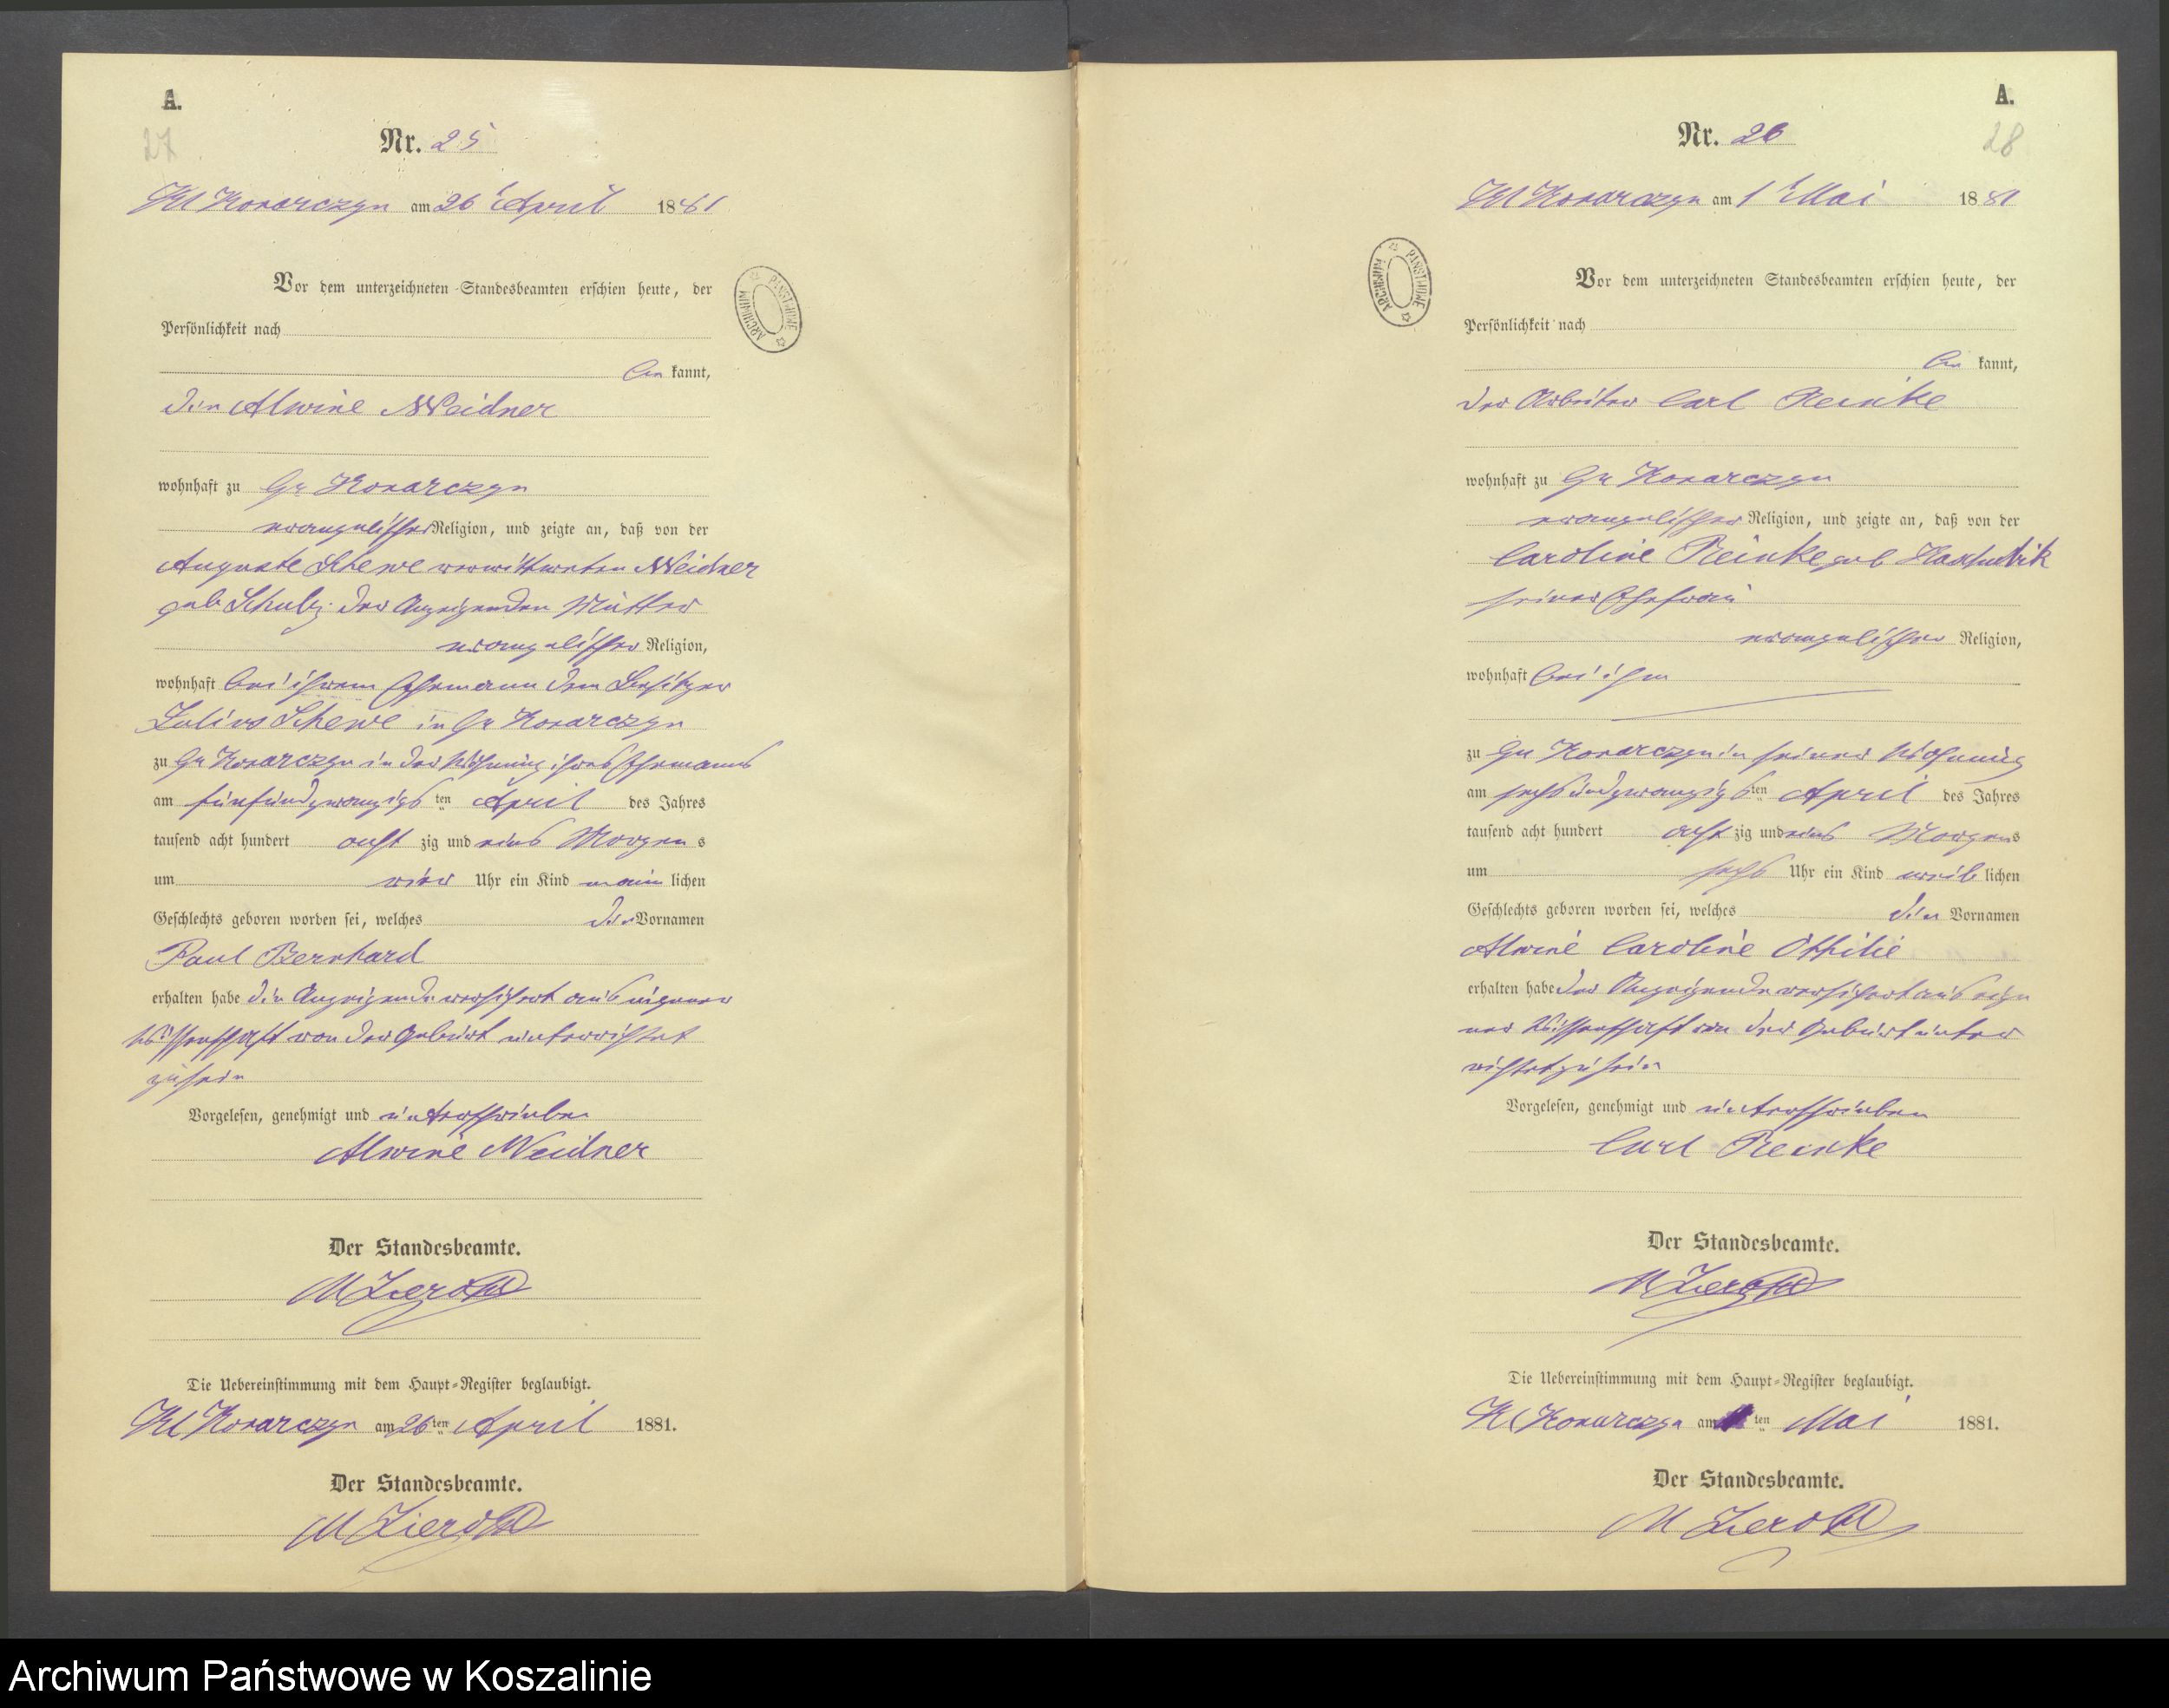 A.
27
Nr. 25
Kl Konarczyn am 26 t April 1881
Vor dem unterzeichneten Standesbeamten erschien heute, der
Persönlichkeit nach
be kannt,
die Alwine Weidner
wohnhaft zu Gr Konarczyn
evangelischer Religion, und zeigte an, daß von der
Auguste Schewe verwittweten Weidner
geb Schulz der Anzeigenden Mutter
evangelischer Religion,
wohnhaft bei ihrem Ehemann dem Besitzer
Julius Schewe in Gr Konarczyn
zu Gr Konarczyn in der Wohnung ihres Ehemanns
am fünfundzwanzigs ten April des Jahres
tausend acht hundert acht zig und eins Morgen s
um vier Uhr ein Kind männ lichen
Geschlechts geboren worden sei, welches die Vornamen
Paul Bernhard
erhalten habe die Anzeigende versichert aus eigener
Wissenschaft von der Geburt unterrichtet
zu sein
Vorgelesen, genehmigt und unterschrieben
Alwine Weidner
Der Standesbeamte.
M Zierold
Die Uebereinstimmung mit dem Haupt-Register beglaubigt.
Kl Konarczyn am 26 ten April 1881.
Der Standesbeamte.
M Zierold
ARCHIWUM PAŃSTWOWE
A.
28
Nr. 26
Kl Konarczyn am 1 t Mai 1881
Vor dem unterzeichneten Standesbeamten erschien heute, der
Persönlichkeit nach
be kannt,
der Arbeiter Carl Reinke
wohnhaft zu Gr Konarczyn
evangelischer Religion, und zeigte an, daß von der
Caroline Reinke geb
seiner Ehefrau
evangelischer Religion,
wohnhaft bei ihm
zu Gr Konarczyn in seiner Wohnung
am sechsundzwanzigs ten April des Jahres
tausend acht hundert acht zig und eins Morgens
um sechs Uhr ein Kind weib lichen
Geschlechts geboren worden sei, welches die Vornamen
Alwine Caroline Ottilie
erhalten habe der Anzeigende versichert aus eige
ner Wissenschaft von der Geburt unter
richtet zu sein
Vorgelesen, genehmigt und unterschrieben
Carl Reinke
Der Standesbeamte.
M Zierold
Die Uebereinstimmung mit dem Haupt-Register beglaubigt.
Kl Konarczyn am ten Mai 1881.
Der Standesbeamte.
M Zierold
ARCHIWUM PAŃSTWOWE
Archiwum Państwowe w Koszalinie